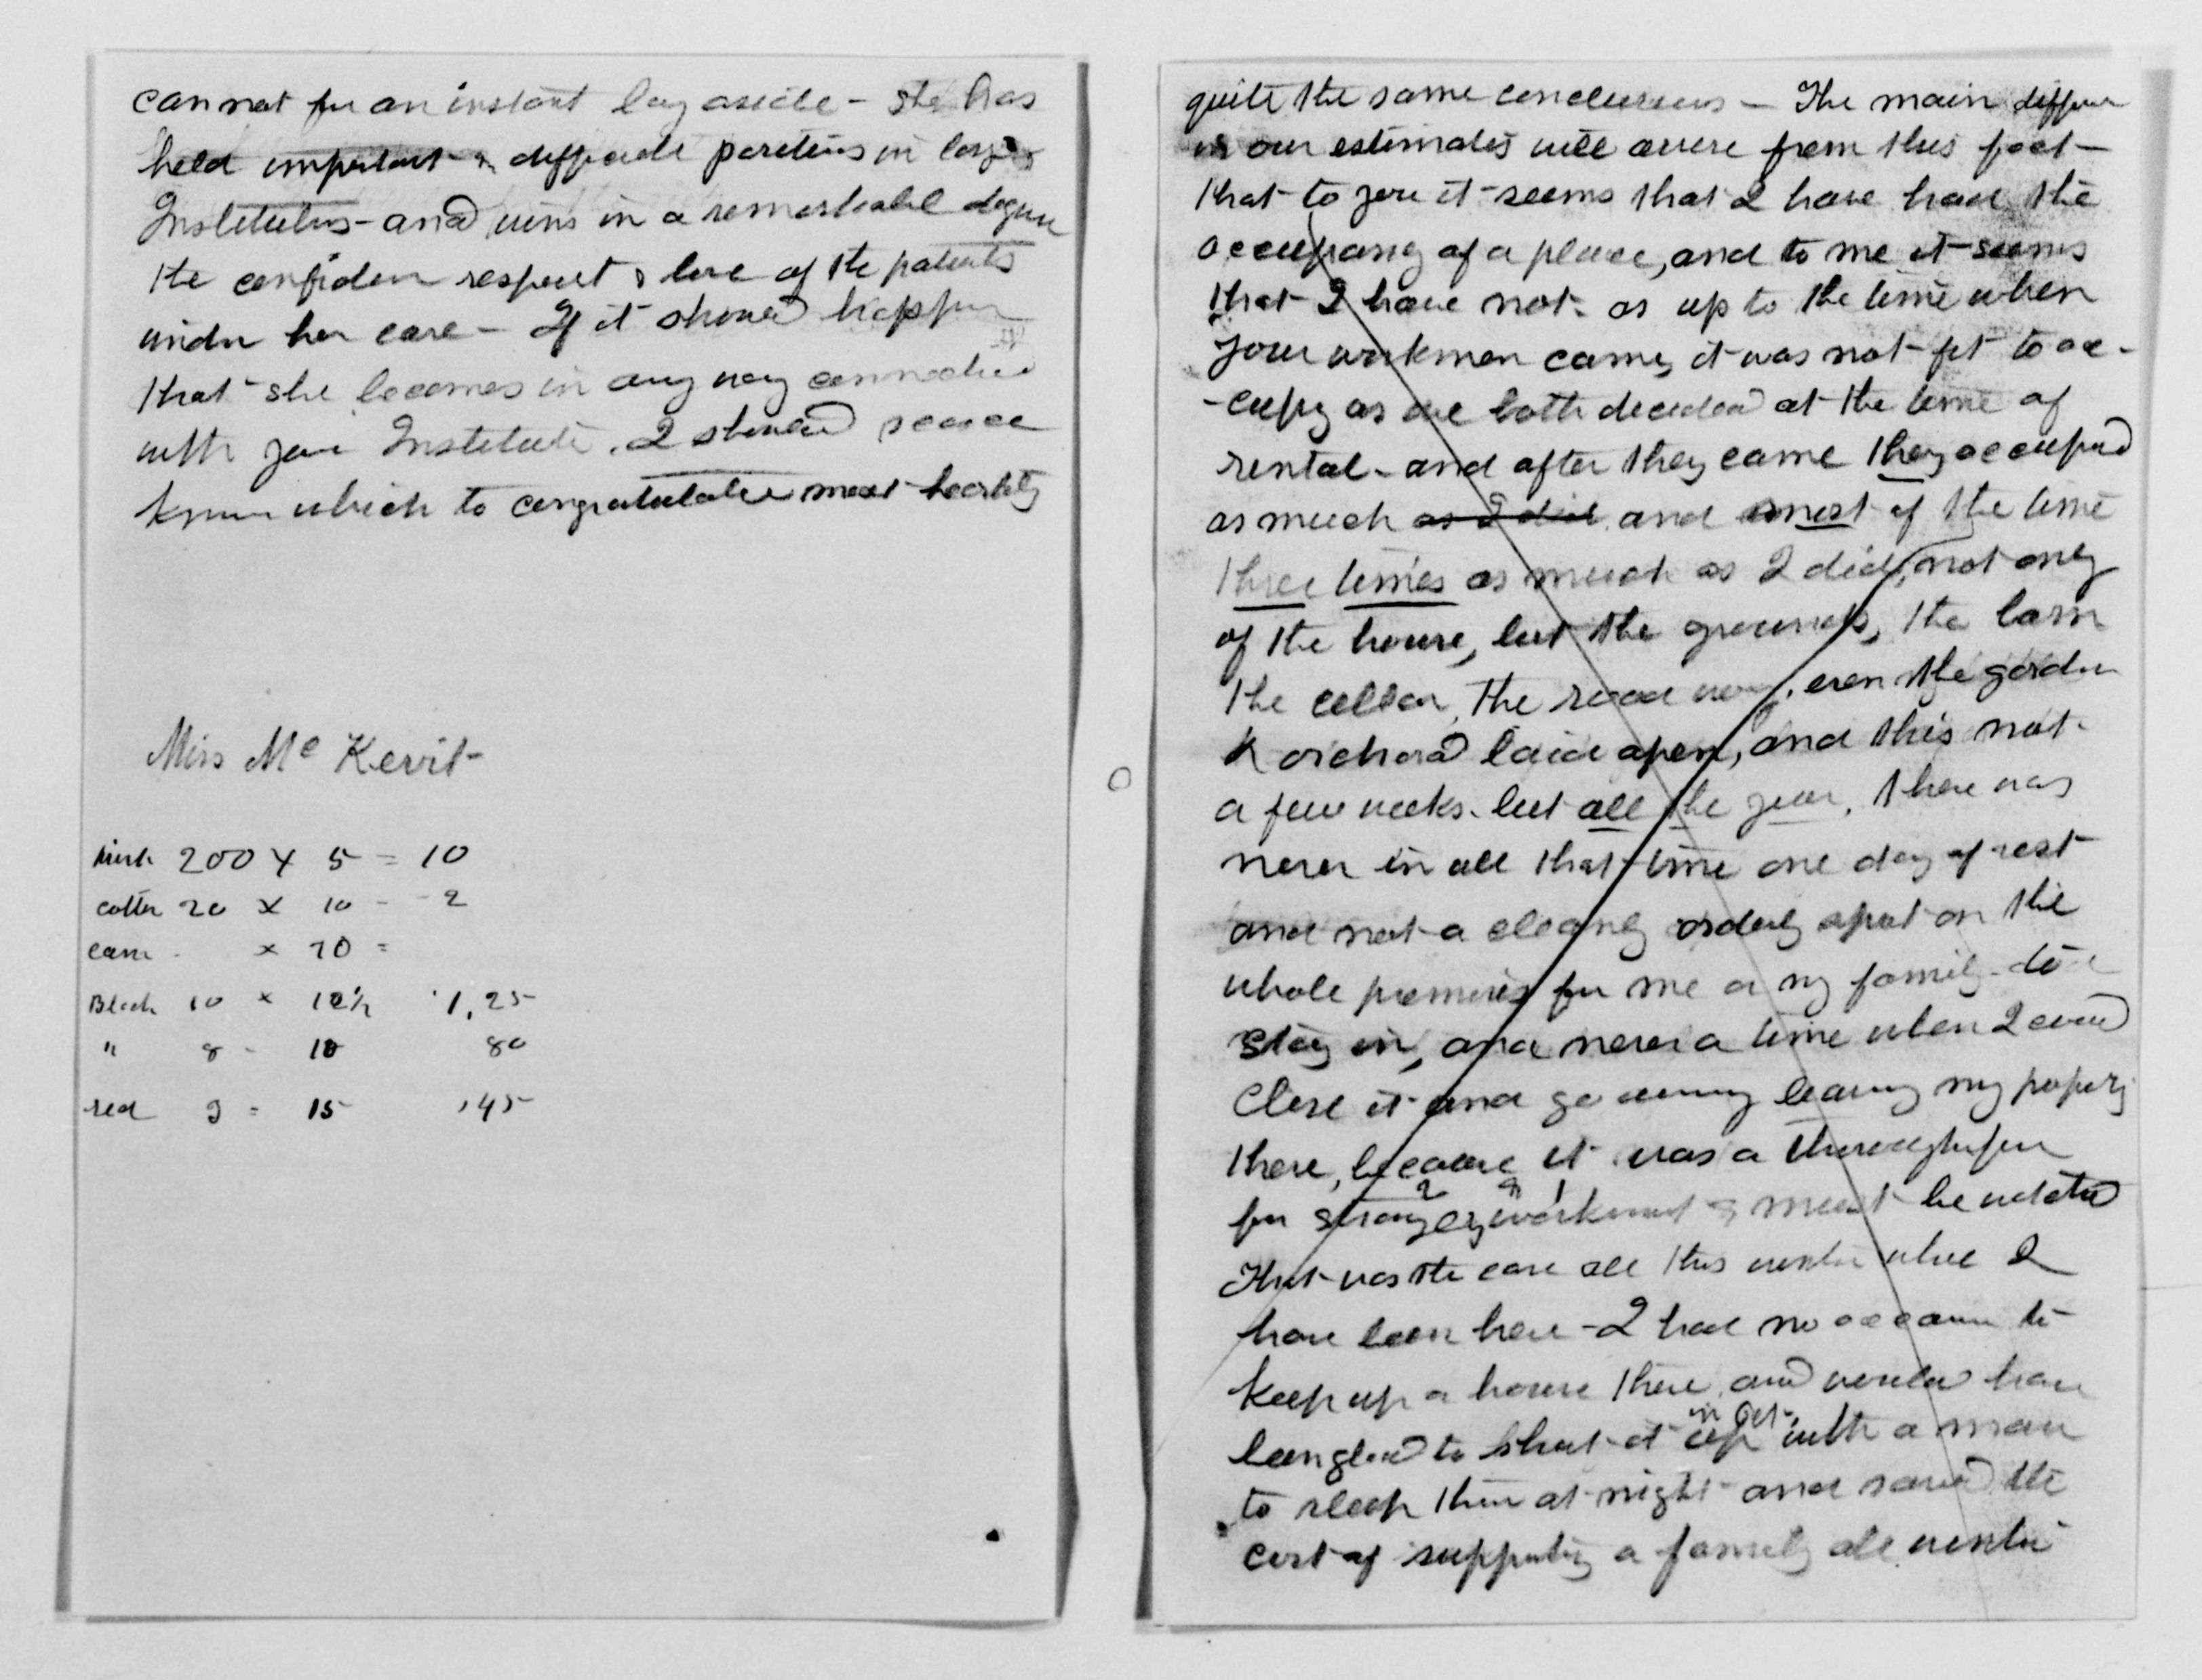 cannot for an instant lay aside - she has
held important & difficult positions in large
Institutions - and wins in a remarkable degree
the confidence respect & love of the patients
under her care - If it should happen
that she becomes in any way connected
with your Institute. I should scarce
know which to congratulate most heartily
Miss Mc Kevit
200 X 5 = 10
20 X 10 - - 2
x 70 =
Black 10 x 12½ 1,25
" 8 - 10 80
red 3 = 15 ,45
quite the same conclusions - The main differen
in our estimates will arise from this fact -
that to you it seems that I have had the
occupancy of a place, and to me it seems
that I have not. as up to the time when
your workmen came, it was not fit to oc-
-cupy as we both decided at the time of
rental - and after they came they occupied
as much as I did. and most of the time
three times as much as I did, not only
of the house, but the grounds, the barn
the cellar, the road way, even the garden
& orchard laid open, and this not
a few weeks. but all the year. there was
never in all that time one day of rest
and not a cleanly orderly spot on the
whole premises for me or my family to
stay in, and never a time when I could
close it and go away leaving my property
there, because it was a thoroughfare
for strangers 2 & workmen 1 & must be watched
That was the case all this winter while I
have been here - I had no occasion to
keep up a house there and would have
been glad to shut it up in Oct. with a man
to sleep there at night and saved the
cost of supporting a family all winter